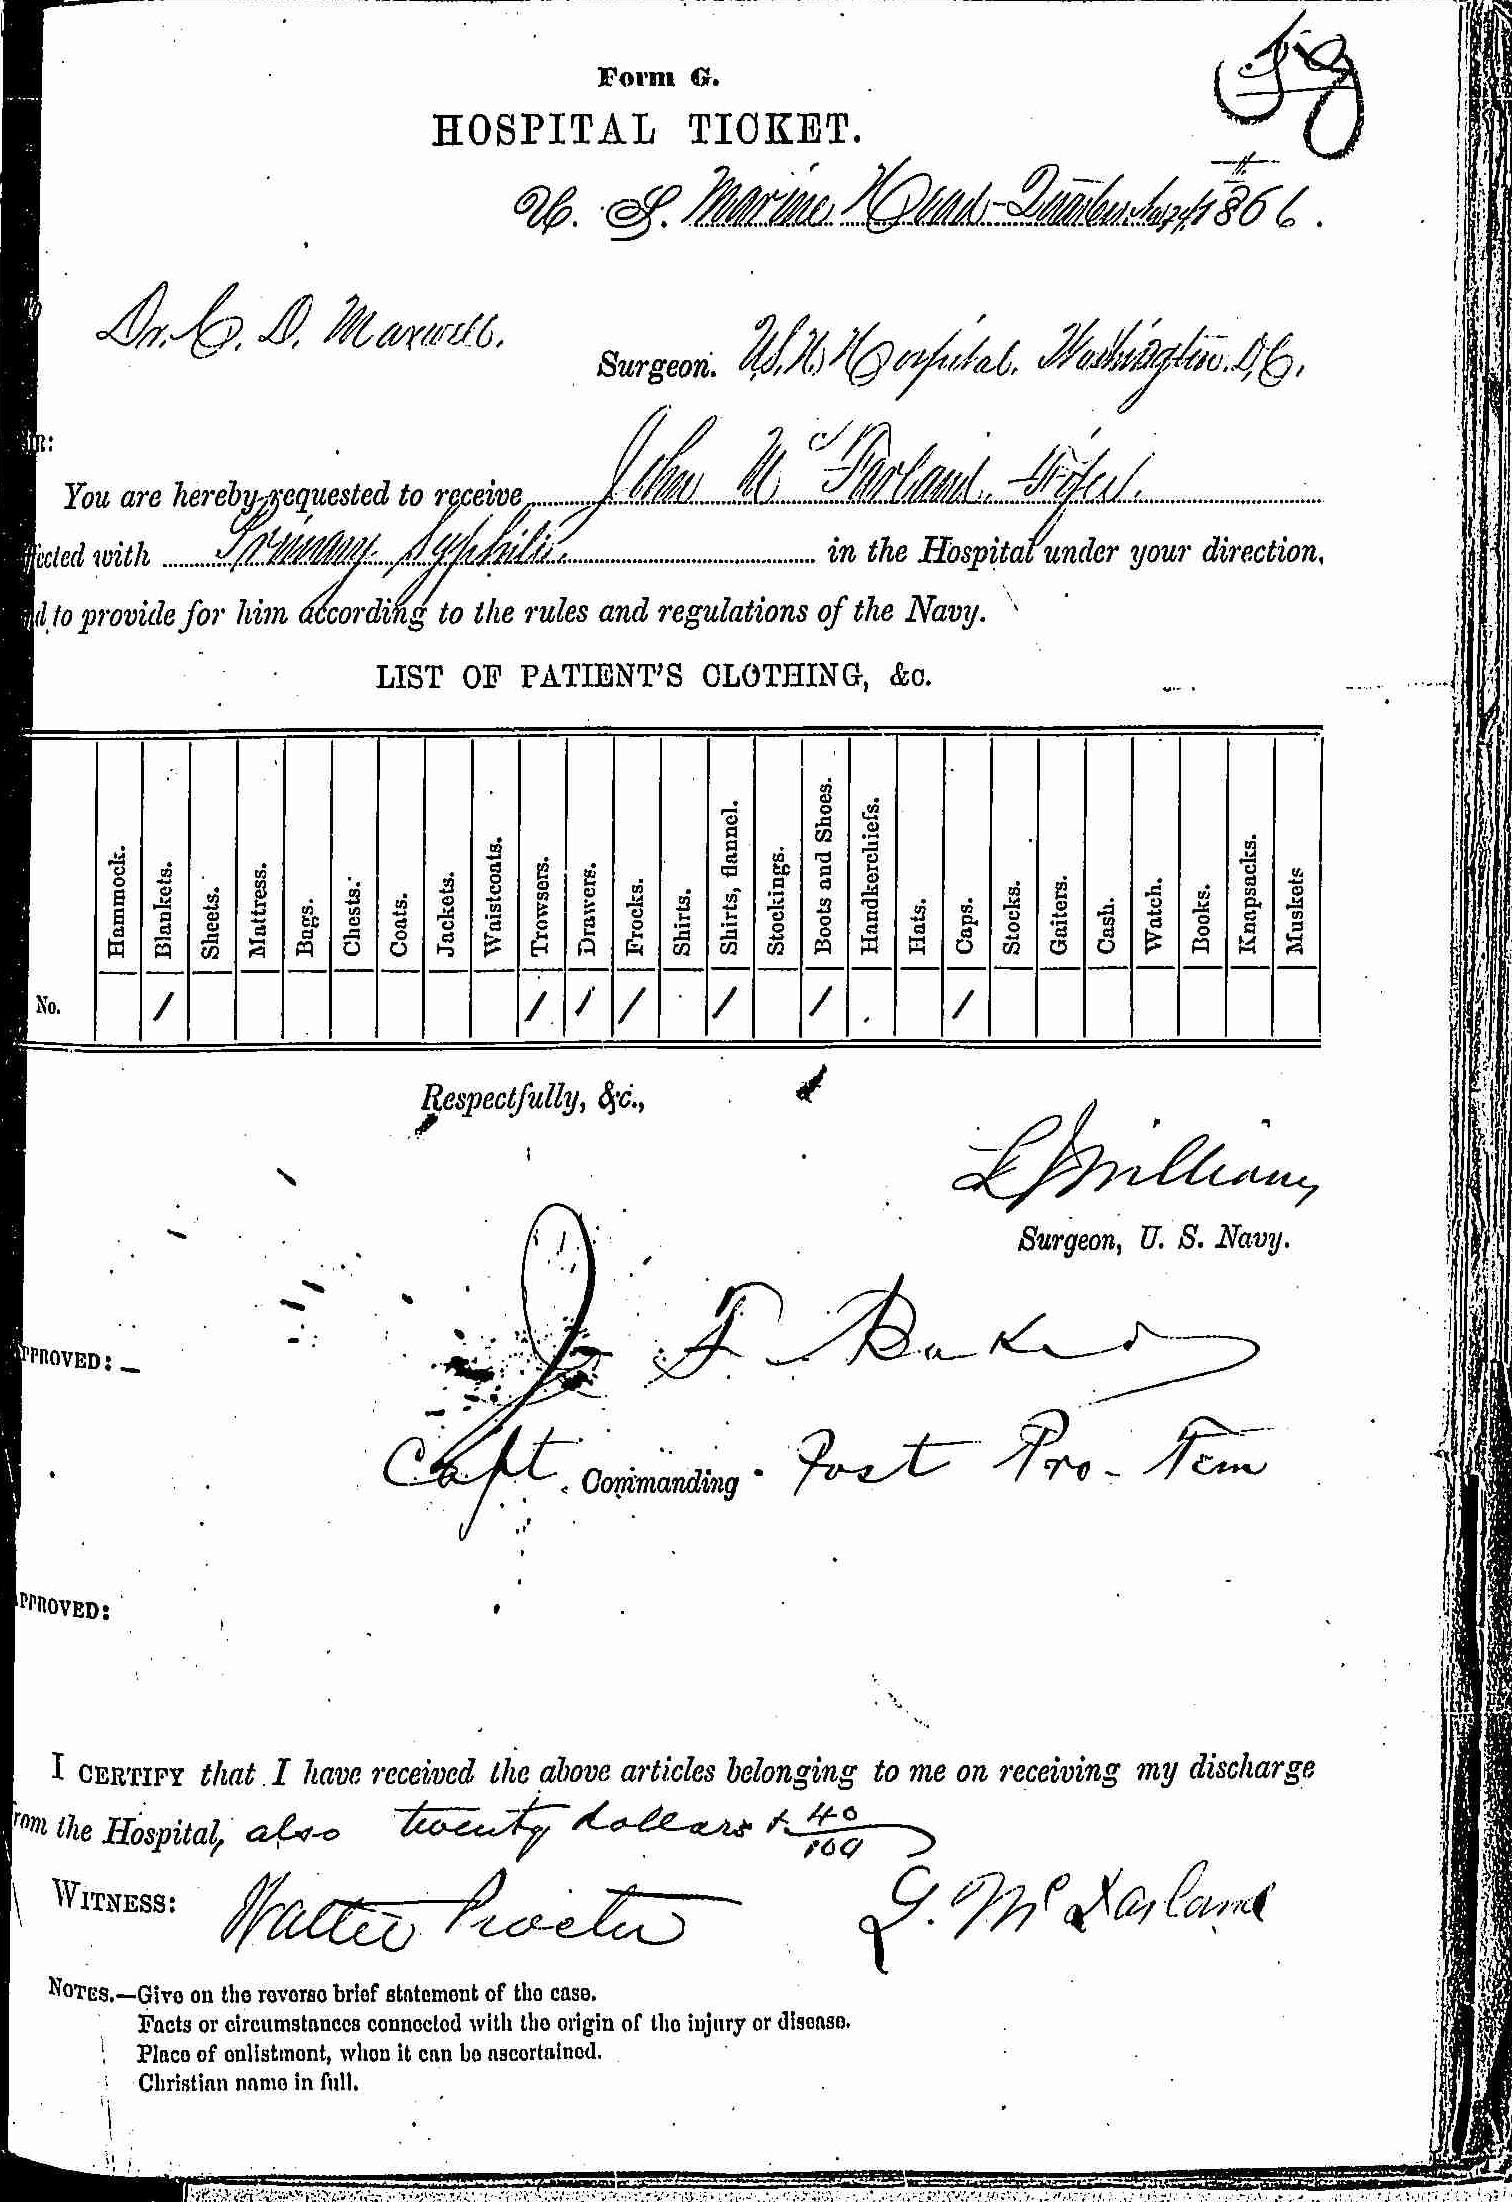 Form G.
HOSPITAL TICKET.
U. S. Marine Head-Quarters, 1866.
Dr. C. D. Maxwell.
Surgeon. U.S.N. Hospital. Washington. D.C.
You are hereby requested to receive John McFarland. Fifer.
with Primary Syphilis. in the Hospital under your direction,
to provide for him according to the rules and regulations of the Navy.
LIST OF PATIENT'S CLOTHING, &c.
Hammock. Blankets. Sheets. Mattress. Bags. Chests. Coats. Jackets. Waistcoats. Trowsers. Drawers. Frocks. Shirts. Shirts, flannel. Stockings. Boots and Shoes. Handkerchiefs. Hats. Caps. Stocks. Gaiters. Cash. Watch. Books. Knapsacks. Muskets
No. / / / / / / /
Respectfully, &c.,
Williams
Surgeon, U. S. Navy.
PPROVED:—
J F Baker
Capt. Commanding Post Pro-Tem
PPROVED:
I CERTIFY that I have received the above articles belonging to me on receiving my discharge
rom the Hospital, also twenty dollars + 40/100
WITNESS: Walter Procter J. McFarland
NOTES.—Give on the reverse brief statement of the case.
Facts or circumstances connected with the origin of the injury or disease.
Place of enlistment, when it can be ascertained.
Christian name in full.